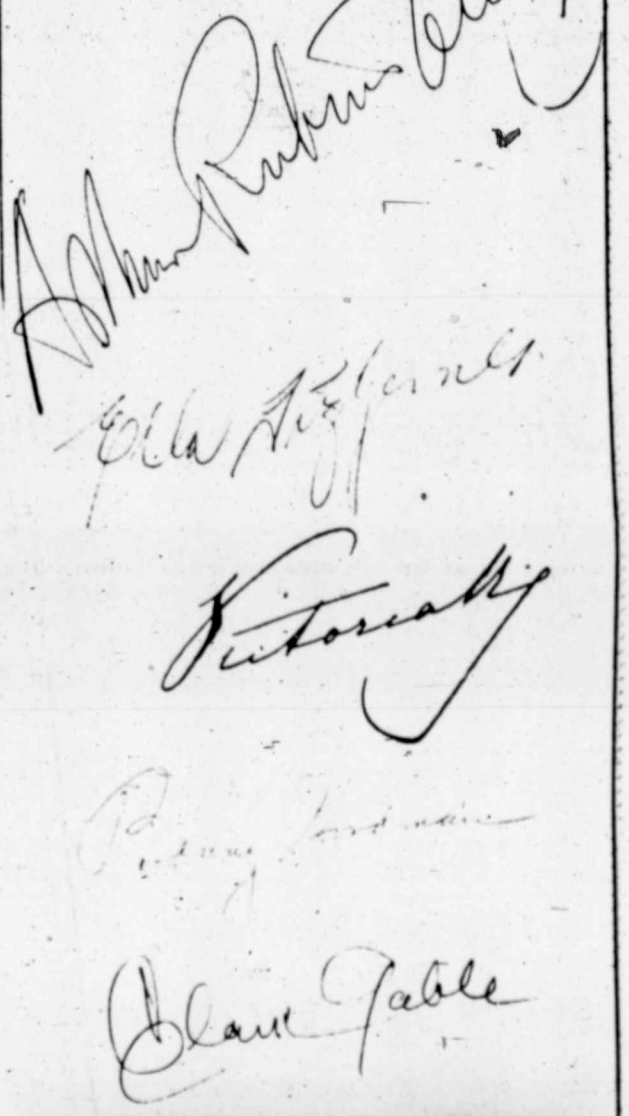 Arthur Rubinstein
Ella Fitzgerald
Benny Goodman
Clark Gable